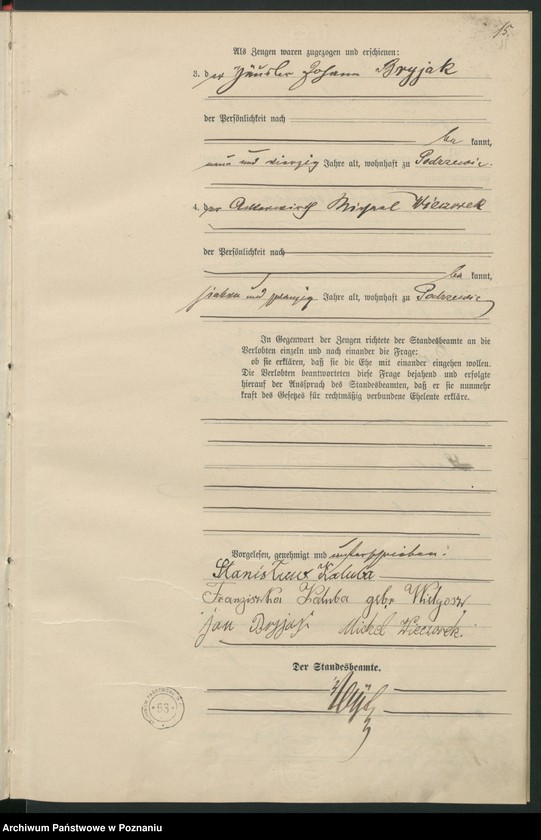 15.
Als Zeugen waren zugezogen und erschienen:
3. der Häusler Johann Bryjak
der Persönlichkeit nach
be kannt,
neun und vierzig Jahre alt, wohnhaft zu Podrzewie.
4. der Ackerwirth Michael Wieczorek
der Persönlichkeit nach
be kannt,
sieben und zwanzig Jahre alt, wohnhaft zu Podrzewie
In Gegenwart der Zeugen richtete der Standesbeamte an die
Verlobten einzeln und nach einander die Frage:
ob sie erklären, daß sie die Ehe mit einander eingehen wollen.
Die Verlobten beantworteten diese Frage bejahend und erfolgte
hierauf der Ausspruch des Standesbeamten, daß er sie nunmehr
kraft des Gesetzes für rechtmäßig verbundene Eheleute erkläre.
Vorgelesen, genehmigt und unterschrieben:
Stanisław Kałuba
Franziszka Kałuba gebr
Jan Bryjak Michel Wieczorek.
Der Standesbeamte.
63
Archiwum Państwowe w Poznaniu